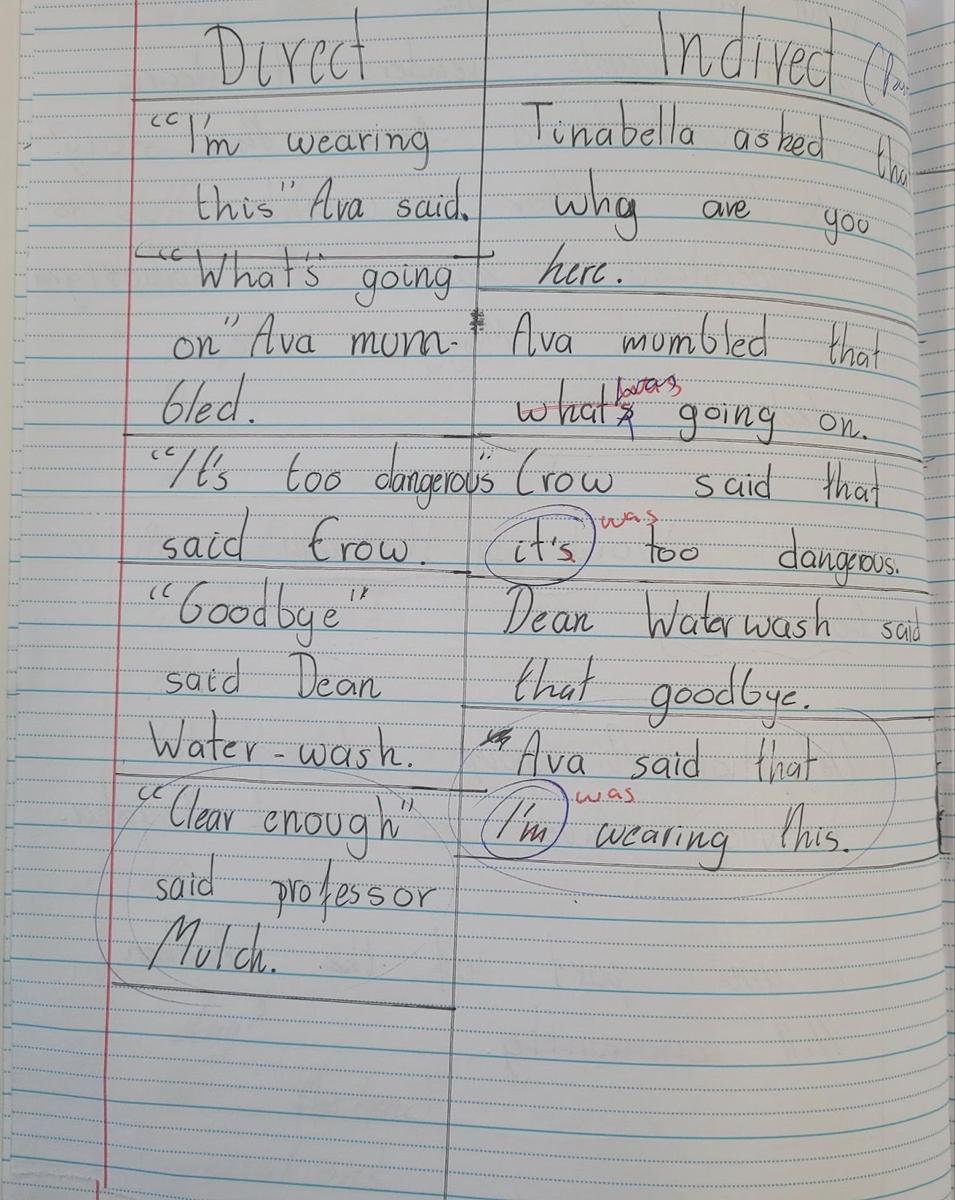 Direct
"I'm wearing
this" Ava said.
"What's going
on" Ava mum-
bled.
"It's too dangerous"
said Crow.
"Goodbye"
said Dean
Water-wash.
"Clear enough"
said professor
Mulch.
Indirect
Tinabella asked
why are you
here.
Ava mumbled that
was
what's going on.
Crow said that
it's was too dangerous.
Dean Waterwash said
that goodbye.
Ava said that
was
I'm wearing this.